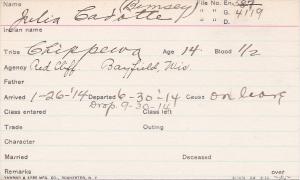 Name (Rumsey) File No. En. 87
Julia Cadotte " " G. 4119
Indian name " " D.
Tribe Chippewa Age 14 Blood 1/2
Agency Red Cliff Bayfield, Wis.
Father
Arrived 1-26-'14 Departed 6-30-'14 Cause on leave
Drop. 9-30-14
Class entered Class left
Trade Outing
Character
Married Deceased
Remarks over
YAWMAN & ERBE MFG. CO., ROCHESTER, N.Y.